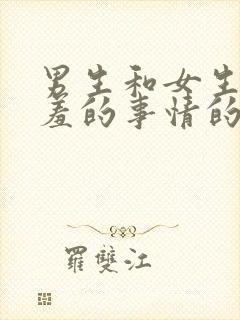 男生和女生
羞的事情的
羅雙江